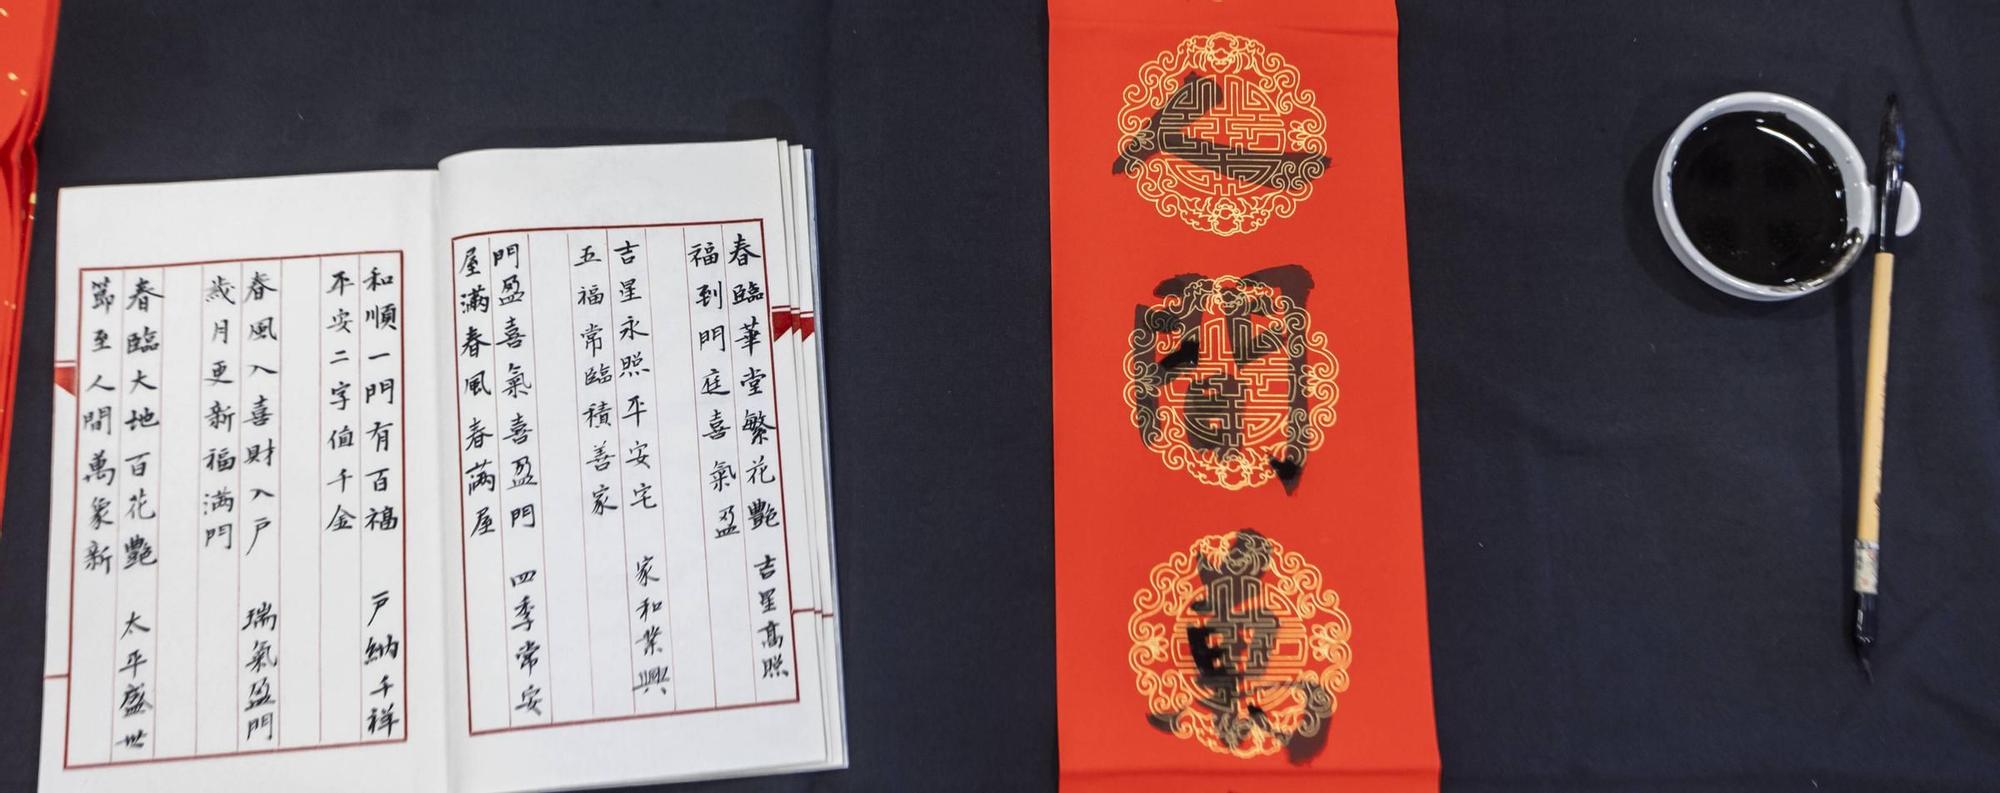 春臨華堂繁花艷 吉星高照
福到門庭喜氣盈
吉星永照平安宅 家和業興
五福常臨積善家
門盈喜氣喜盈門 四季常安
屋滿春風春滿屋
和順一門有百福 戶納千祥
平安二字值千金
春風入喜財入戶 瑞氣盈門
歲月更新福滿門
春臨大地百花艷 太平盛世
節至人間萬象新